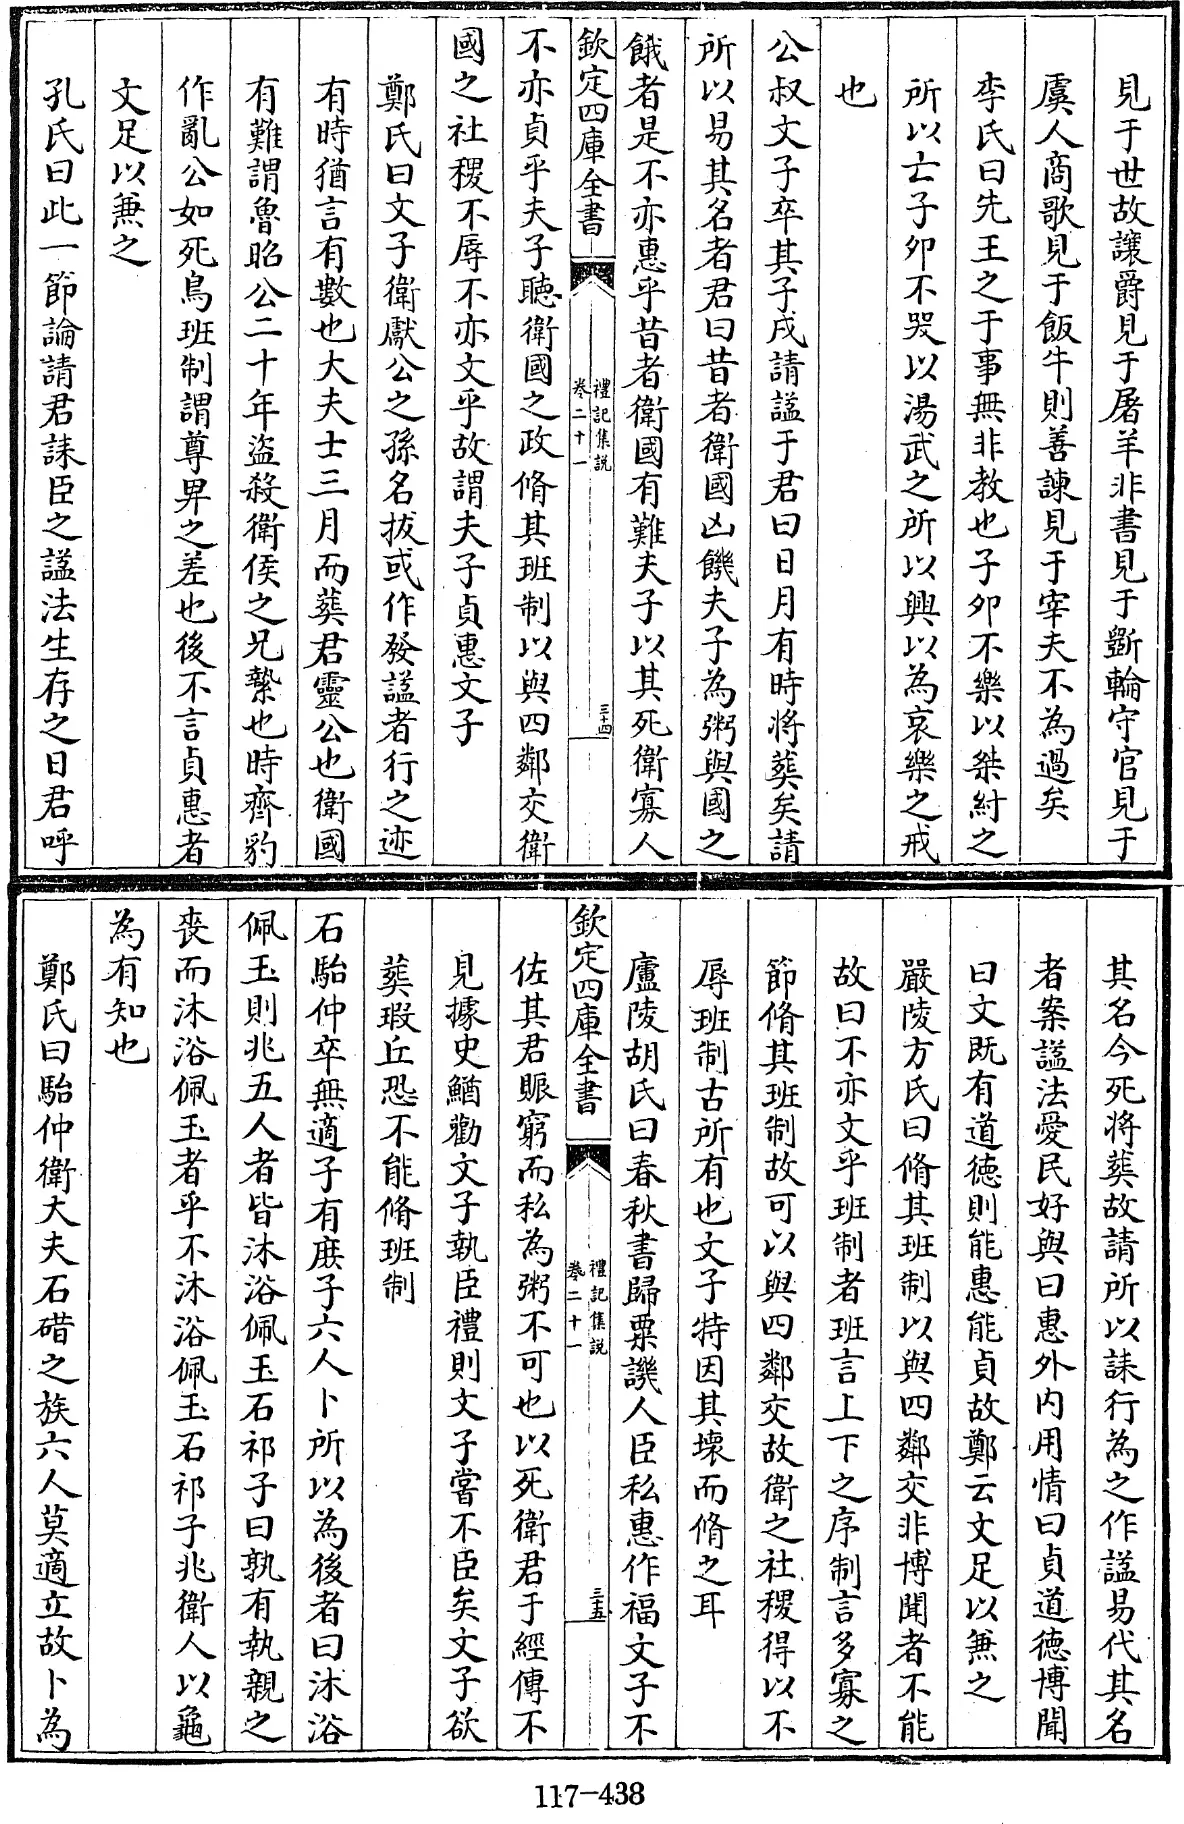 見于世故讓爵見于屠羊非書見于斵輪守官見于
虞人商歌見于飯牛則善諫見于宰夫不為過矣
李氏曰先王之于事無非教也子夘不樂以桀紂之
所以亡子夘不哭以湯武之所以興以為哀樂之戒
也
公叔文子卒其子戍請諡于君曰日月有時將葬矣請
所以易其名者君曰昔者衛國凶饑夫子為粥與國之
餓者是不亦惠乎昔者衛國有難夫子以其死衛寡人
欽定四庫全書
禮記集説
卷二十一
三十四
不亦貞乎夫子聽衛國之政脩其班制以與四鄰交衛
國之社稷不辱不亦文乎故謂夫子貞惠文子
鄭氏曰文子衛獻公之孫名拔或作發諡者行之迹
有時猶言有數也大夫士三月而葬君靈公也衛國
有難謂魯昭公二十年盜殺衛侯之兄縶也時齊豹
作亂公如死鳥班制謂尊卑之差也後不言貞惠者
文足以兼之
孔氏曰此一節論請君誄臣之諡法生存之日君呼
其名今死將葬故請所以誄行為之作諡易代其名
者案諡法愛民好與曰惠外内用情曰貞道德博聞
曰文既有道德則能惠能貞故鄭云文足以兼之
嚴陵方氏曰脩其班制以與四鄰交非博聞者不能
故曰不亦文乎班制者班言上下之序制言多寡之
節脩其班制故可以與四鄰交故衛之社稷得以不
辱班制古所有也文子特因其壞而脩之耳
廬陵胡氏曰春秋書歸粟譏人臣私惠作福文子不
欽定四庫全書
禮記集説
卷二十一
三十五
佐其君賑窮而私為粥不可也以死衛君于經傳不
見據史鰌勸文子執臣禮則文子嘗不臣矣文子欲
葬瑕丘恐不能脩班制
石駘仲卒無適子有庶子六人卜所以為後者曰沐浴
佩玉則兆五人者皆沐浴佩玉石祁子曰孰有執親之
喪而沐浴佩玉者乎不沐浴佩玉石祁子兆衛人以龜
為有知也
鄭氏曰駘仲衛大夫石碏之族六人莫適立故卜為
117-438